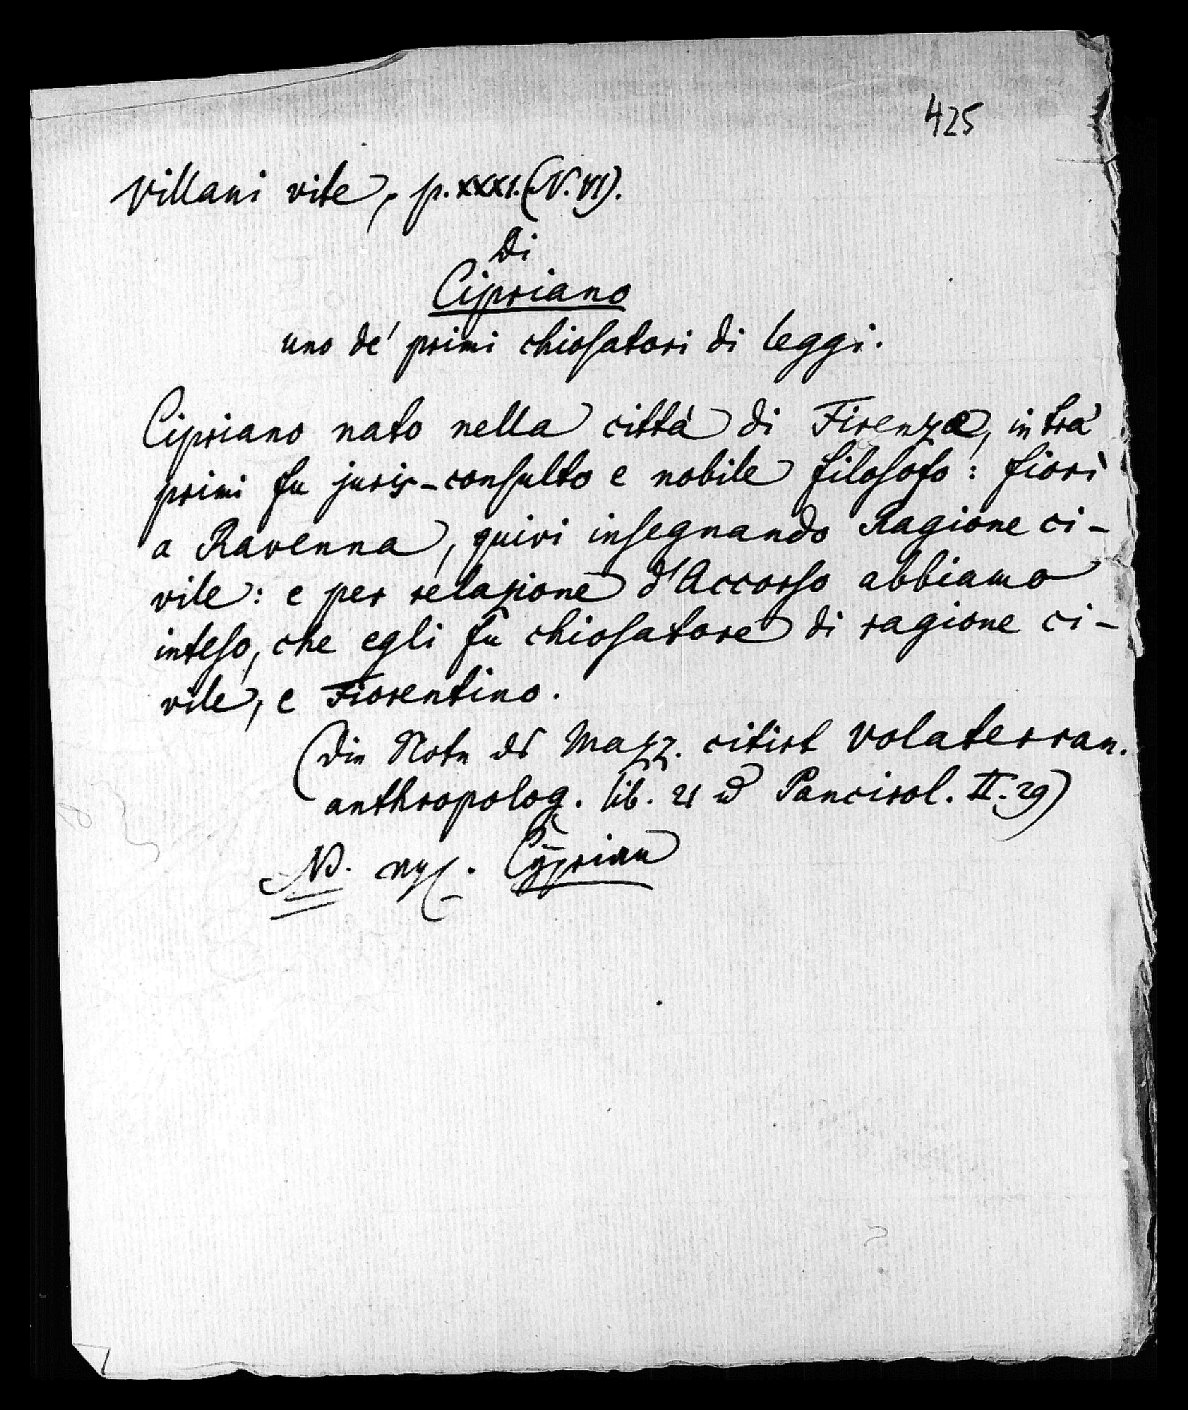 425
Villani vite, p. XXXI. (N. VI).
di
Cipriano
uno de' primi chiosatori di leggi.
Cipriano nato nella città di Firenze, in tra'
primi fu juris-consulto e nobile filosofo: fiorì
a Ravenna, quivi insegnando Ragione ci-
vile: e per relazione d'Accorso abbiamo
inteso, che egli fù chiosatore di ragione ci-
vile, e Fiorentino.
(Die Note des Mazz. citirt Volaterran.
anthropolog. lib. 21 u Pancirol. II. 29)
NB. vgl. Cyprian